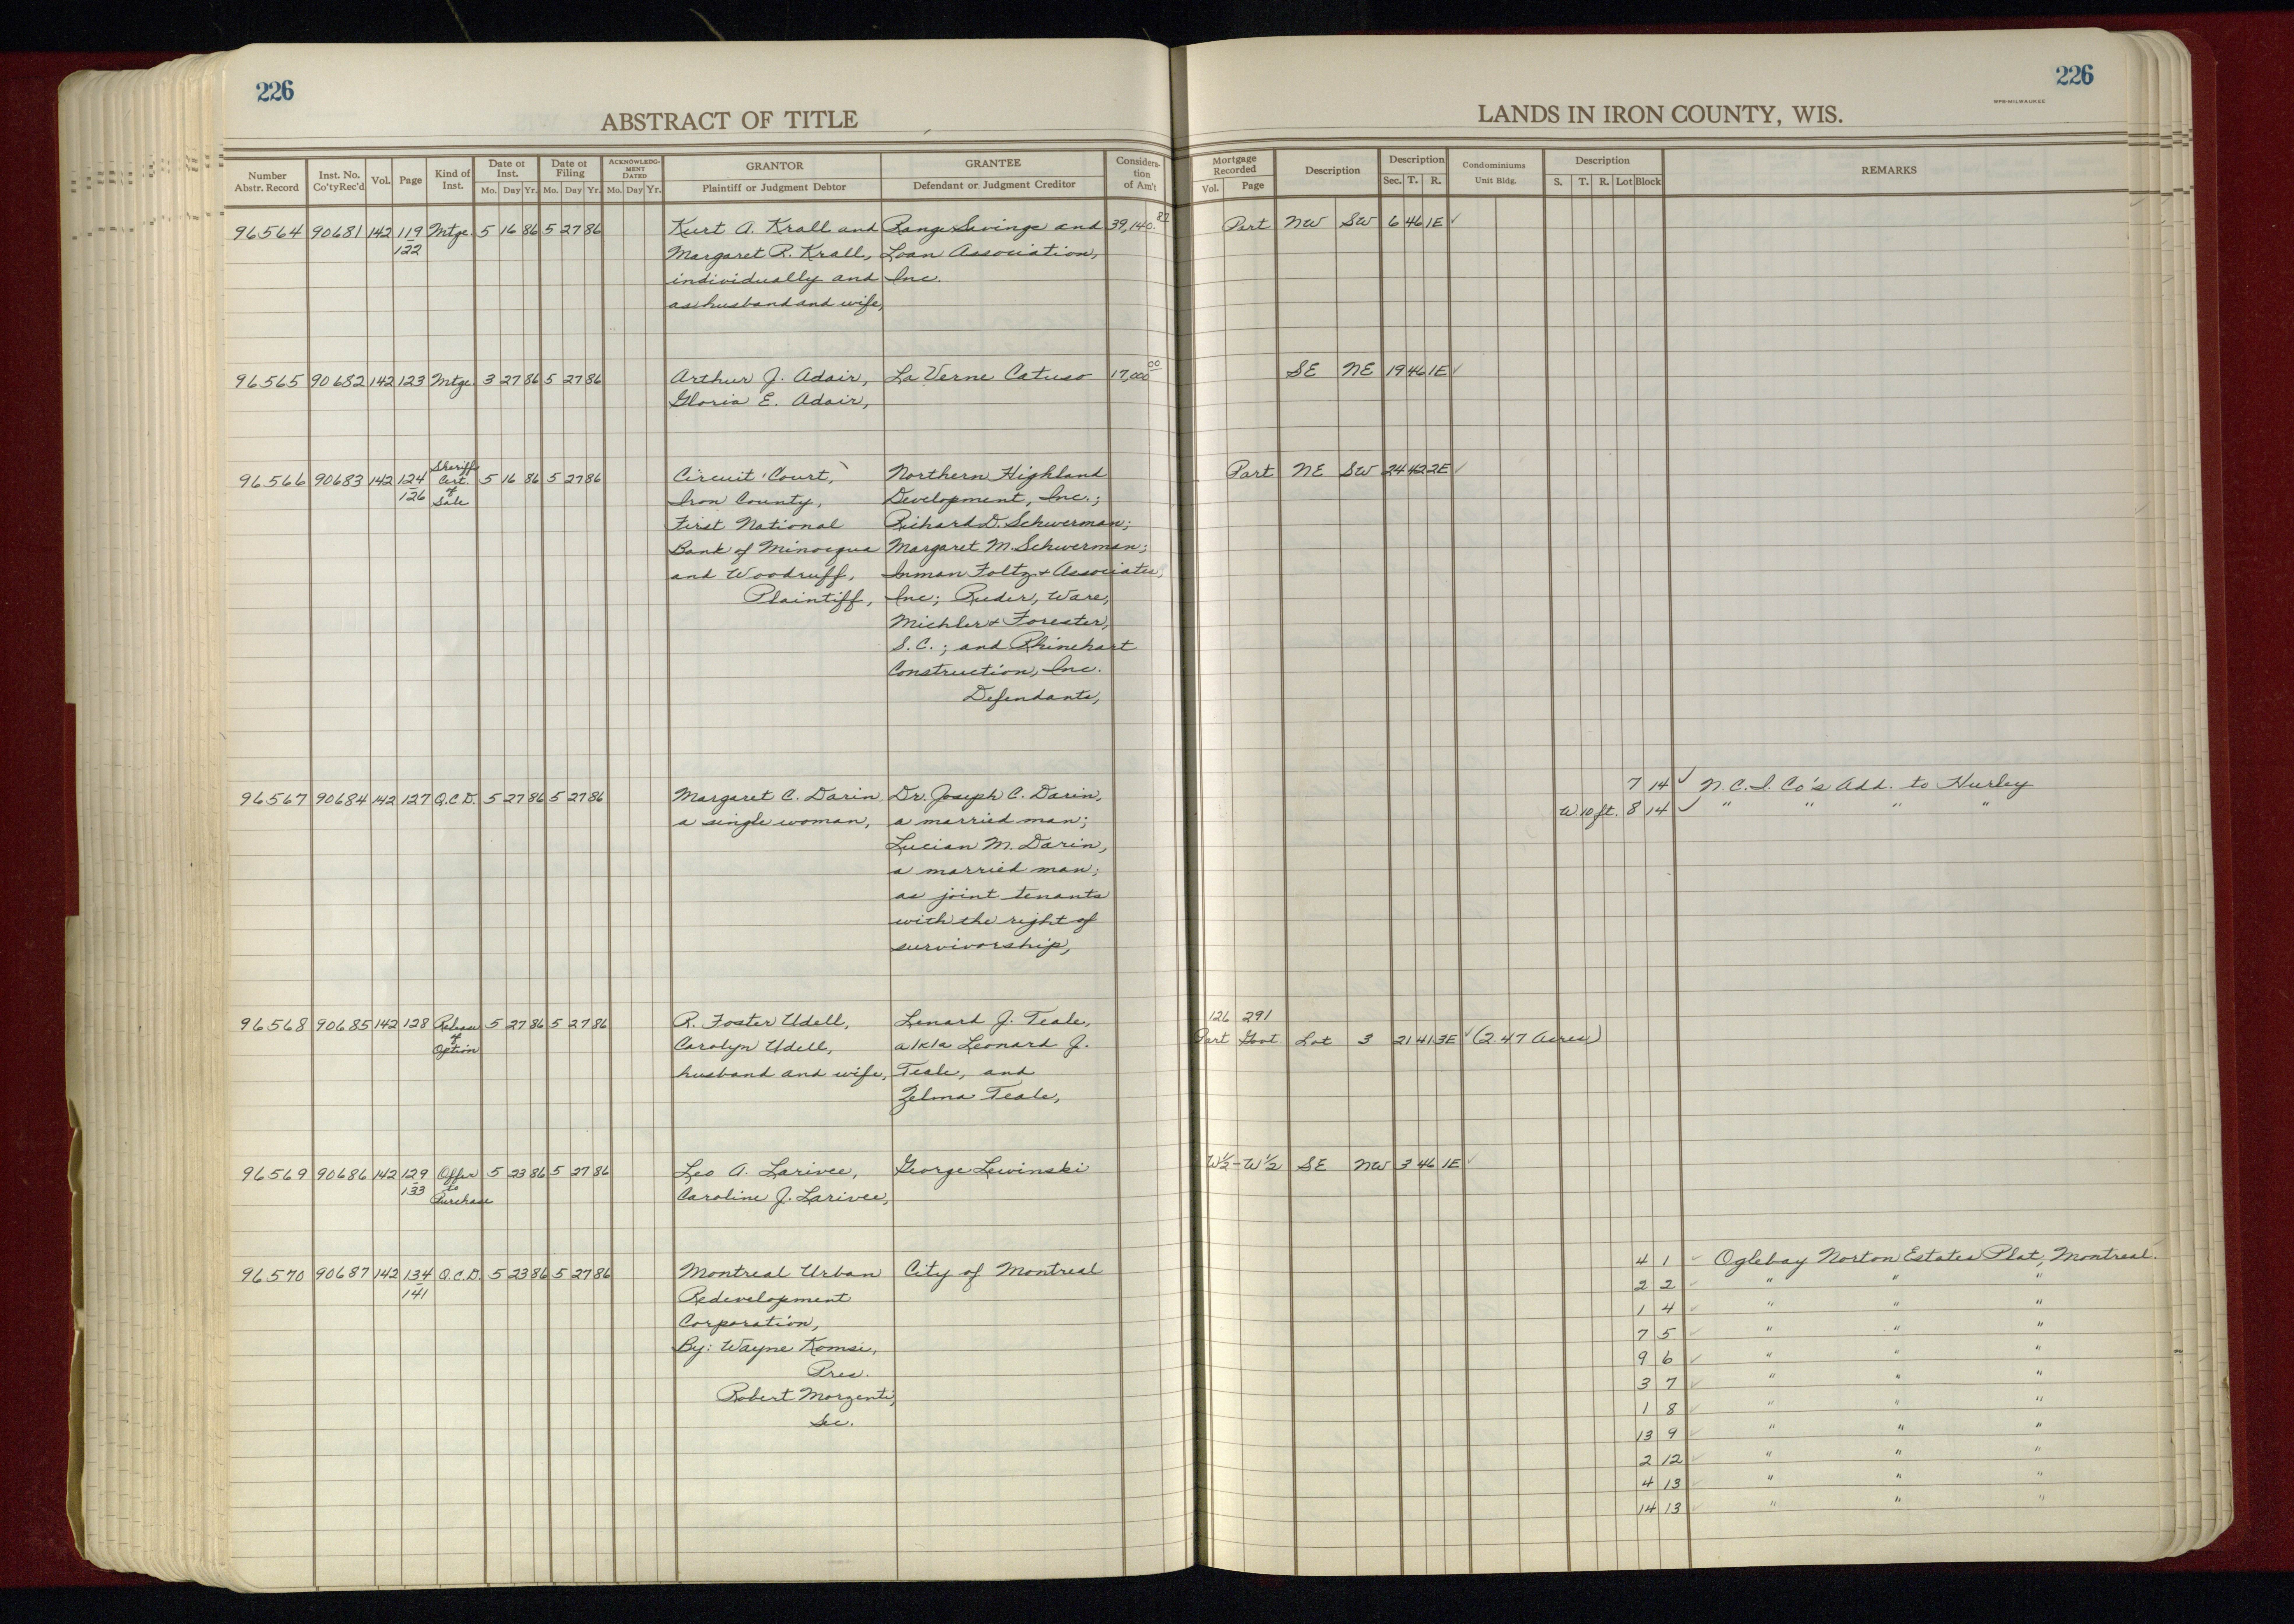 226
226
WPB-MILWAUKEE
ABSTRACT OF TITLE
LANDS IN IRON COUNTY, WIS.
Number Abstr. Record | Inst. No. Co'ty Rec'd | Vol. | Page | Kind of Inst. | Date of Inst. Mo. Day Yr. | Date of Filing Mo. Day Yr. | ACKNOWLEDGMENT DATED Mo. Day Yr. | GRANTOR Plaintiff or Judgment Debtor | GRANTEE Defendant or Judgment Creditor | Consideration of Am't | Mortgage Recorded Vol. Page | Description | Description Sec. T. R. | Condominiums Unit Bldg. | Description S. T. R. Lot Block | REMARKS
96564 90681 142 119 Mtge 5 16 86 5 27 86 Kurt A. Krall and Range Savings and 39,140.87 Part NW SW 6 46 1E ✓
122 Margaret R. Krall, Loan Association,
individually and Inc.
as husband and wife,
96565 90682 142 123 Mtge 3 27 86 5 27 86 Arthur J. Adair, La Verne Catuso 17,000.00 SE NE 19 46 1E ✓
Gloria E. Adair,
96566 90683 142 124 Sheriff Cert. of Sale 5 16 86 5 27 86 Circuit Court, Northern Highland Part NE SW 24 42 2E ✓
126 Iron County, Development, Inc.;
First National Richard D. Schwerman;
Bank of Minocqua Margaret M. Schwerman;
and Woodruff, Inman Foltz & Associates,
Plaintiff, Inc; Ruder, Ware,
Michler & Forester,
S.C.; and Rhinehart
Construction, Inc.
Defendants,
96567 90684 142 127 Q.C.D. 5 27 86 5 27 86 Margaret C. Darin Dr. Joseph C. Darin, 7 14 ✓ N.C.I. Co's Add. to Hurley
a single woman, a married man; W 10 ft. 8 14 ✓ " " " "
Lucian M. Darin,
a married man;
as joint tenants
with the right of
survivorship,
96568 90685 142 128 Release of Option 5 27 86 5 27 86 R. Foster Udell, Lenard J. Teale, 126 291
Carolyn Udell, a/k/a Leonard J. Part Govt. Lot 3 21 41 3E ✓ (2.47 Acres)
husband and wife, Teale, and
Zelma Teale,
96569 90686 142 129 Offer to Purchase 5 23 86 5 27 86 Leo A. Larivee, George Lewinski W½-W½ SE NW 3 46 1E ✓
133 Caroline J. Larivee,
96570 90687 142 134 Q.C.D. 5 23 86 5 27 86 Montreal Urban City of Montreal 4 1 ✓ Oglebay Norton Estates Plat, Montreal.
141 Redevelopment 2 2 ✓ " " "
Corporation, 1 4 ✓ " " "
By: Wayne Komsi, 7 5 ✓ " " "
Pres. 9 6 ✓ " " "
Robert Morzenti, 3 7 ✓ " " "
Sec. 1 8 ✓ " " "
13 9 ✓ " " "
2 12 ✓ " " "
4 13 ✓ " " "
14 13 ✓ " " "